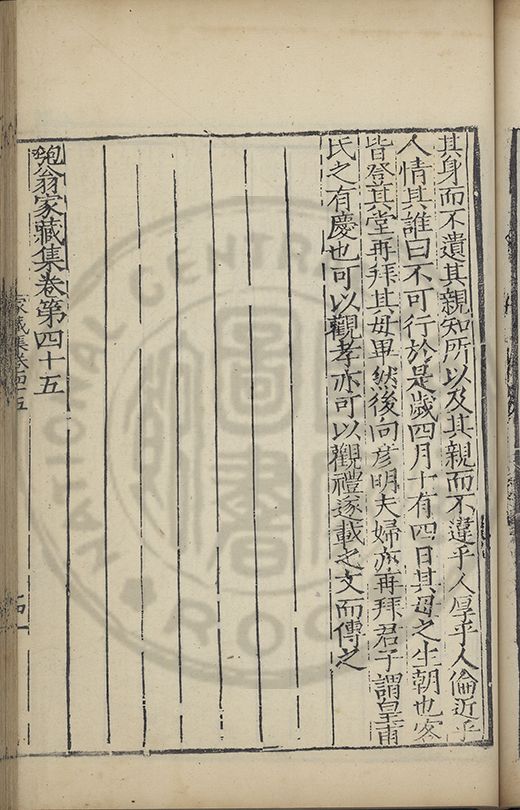 其身而不遺其親知所以及其親而不違乎人厚乎人倫近乎
人情其誰曰不可行於是歲四月十有四日其母之生朝也客
皆登其堂再拜其母畢然後向彥明夫婦亦再拜君子謂皇甫
氏之有慶也可以觀孝亦可以觀禮遂載之文而傳之
匏翁家藏集卷第四十五
家藏集卷四十五